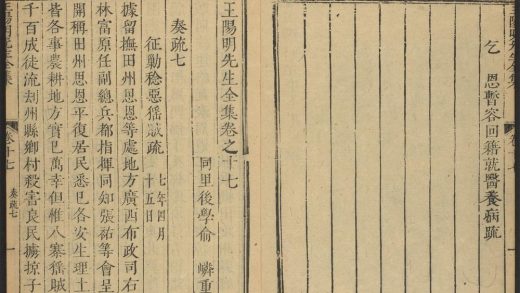 乞　恩暫容回籍就醫養病疏
王陽明先生全集卷之十七
同里後學俞　嶙重
奏疏七
征勦稔惡猺賊疏　七年四月十五日
據留撫田州思恩等處地方廣西布政司右
林富原任副總兵都指揮同知張祐等會呈
開稱田州思恩平復居民悉已各安生理土
皆各事農耕地方實已萬幸但惟八寨猺賊
千百成徒流刦州縣鄉村殺害良民擄掠子
王陽明先生全集　卷十七　奏疏七　一